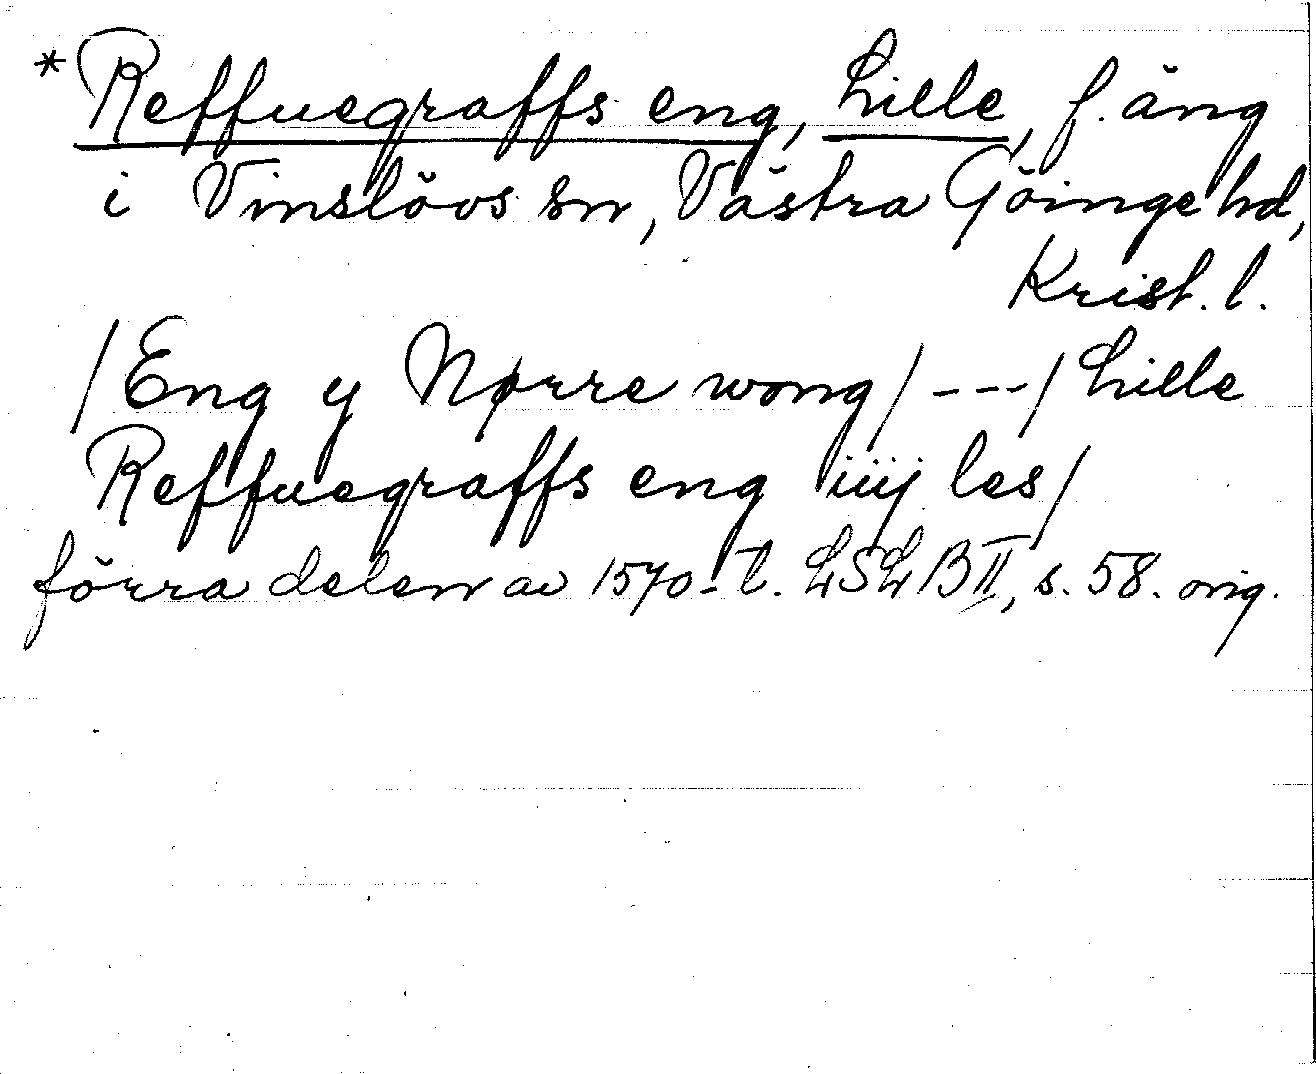 * Reffuegraffs eng, Lille, f. äng
i Vinslövs sn, Västra Göinge hd,
Krist. l.
/Eng y Nørre wong/ ---/ Lille
Reffuegraffs eng iiij les/
förra delen av 1570-t. LSLB II, s. 58. orig.